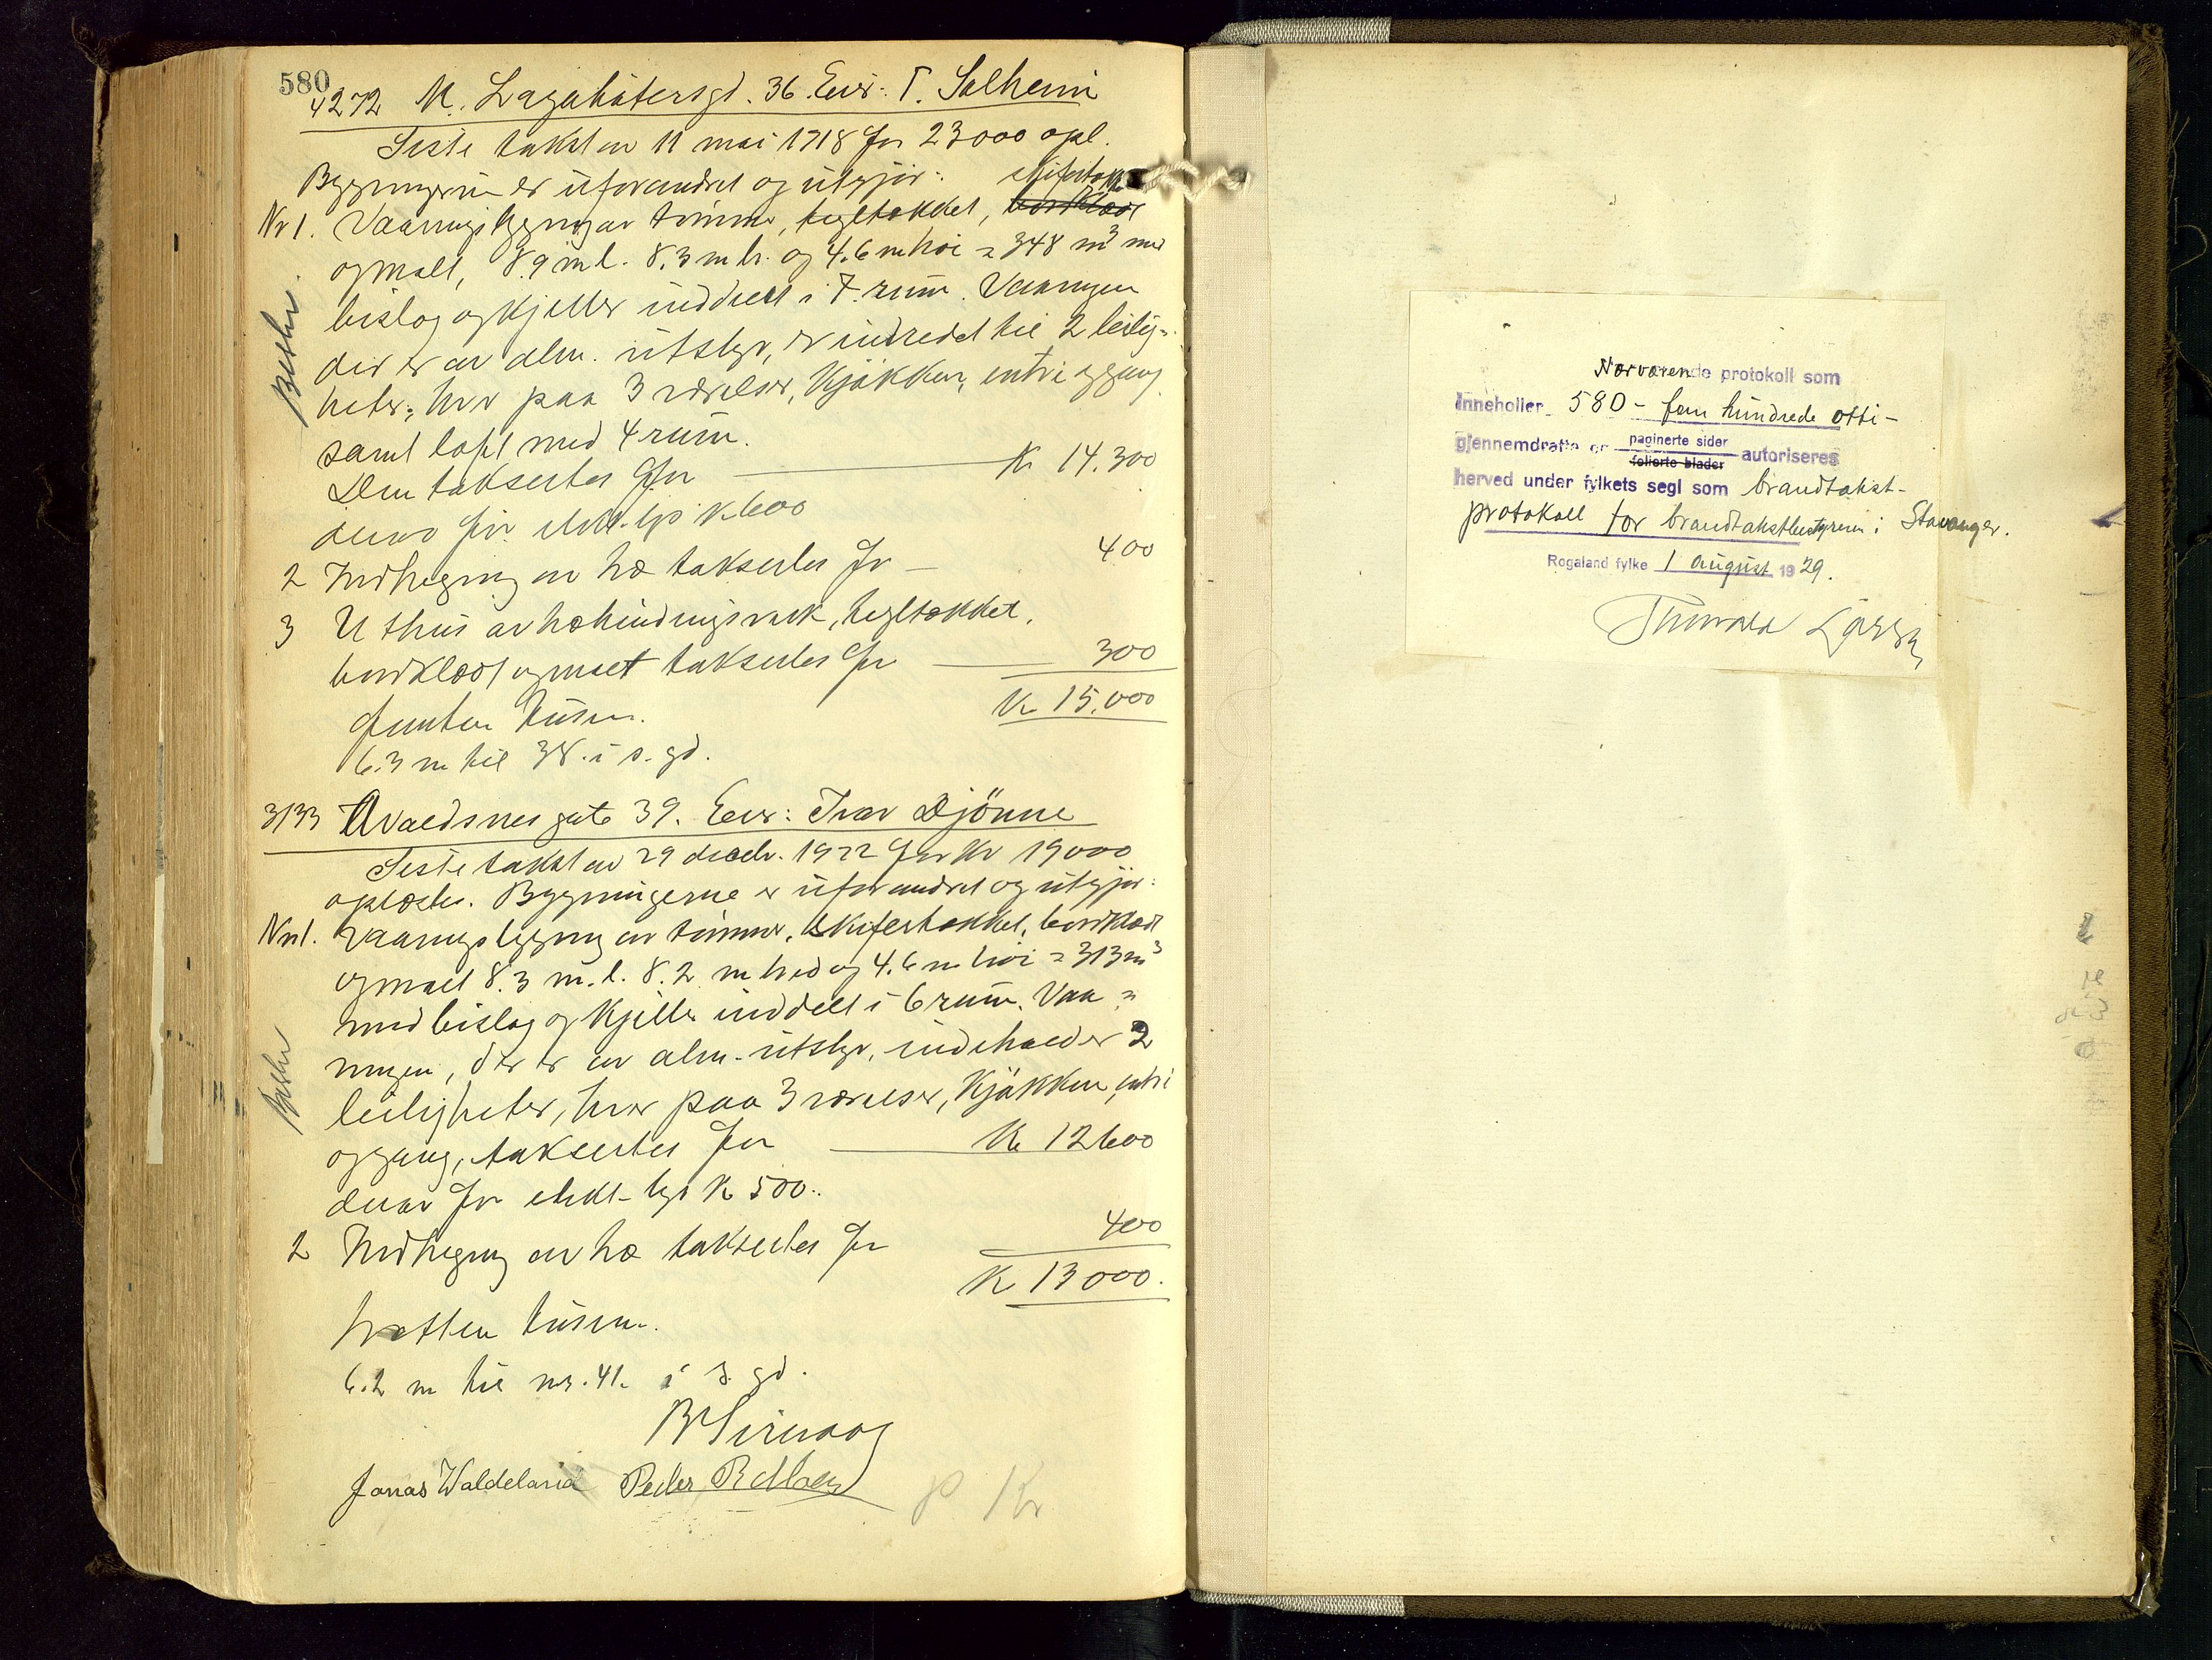 580
4272 M. Lagabøtersgd. 36. Eier: T. Solheim
Siste takst av 11 mai 1918 for 23000 opl.
Bygningerne er uforandret og utgjør: skifertak
Nr 1. Vaaningsbygning av tømmer, tegltækket, bordklædt
og malt, 8.9 m l. 8.3 m br. og 4.6 m høi = 348 m³ med
bislag og kjeller inddelt i 7 rum. Vaaningen
der er av alm. utstyr, er indredet til 2 leilig-
heter, hver paa 3 værelser, kjøkken, entre og gang
samt loft med 4 rum.
Den takseertes for Kr 14.300
derav for elekt. lys kr 600
2 Indhegning av træ takseertes for 400
3 Uthus av træbindingsværk, tegltækket,
bordklædt og malt takseertes for 300
femten tusen. Kr 15.000
6.3 m til 38. i s. gd.
3133 Avaldsnesgate 39. Eier: Ivar Djönne
Siste takst av 29 decbr. 1922 for Kr 19000
oplæstes. Bygningerne er uforandret og utgjør:
Nr 1. Vaaningsbygning av tømmer, skifertækket, bordklædt
og malt 8.3 m. l. 8.2 m bred og 4.6 m høi = 313 m³
med bislag og kjeller inddelt i 6 rum. Vaa-
ningen, der er av alm. utstyr, indeholder 2
leiligheter, hver paa 3 værelser, kjøkken, entre
og gang, takseertes for Kr 12600
derav for elekt. lys kr 500.
2 Indhegning av træ takseertes for 400
Kr 13000.
tretten tusen.
6.2 m til nr. 41. i s. gd.
Jonas Waldeland Peder
Nærværende protokoll som
inneholler 580 - fem hundrede otti -
gjennemdratte og paginerte sider autoriseres
folierte blader
herved under fylkets segl som brandtakst-
protokoll for brandtakstbestyreren i Stavanger.
Rogaland fylke 1 august 1929.